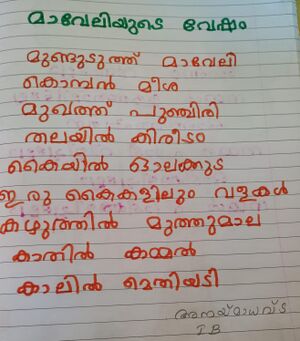 മാവേലിയുടെ വേഷം
മുണ്ടുടുത്ത് മാവേലി
കൊമ്പൻ മീശ
മുഖത്ത് പുഞ്ചിരി
തലയിൽ കിരീടം
കൈയിൽ ഓലക്കുട
ഇരു കൈകളിലും വളകൾ
കഴുത്തിൽ മുത്തുമാല
കാതിൽ കമ്മൽ
കാലിൽ മെതിയടി
I B